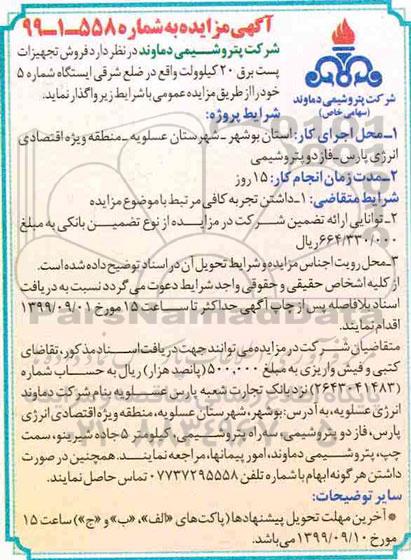 آگهی مزایده به شماره ۵۵۸-۱-۹۹
شرکت پتروشیمی دماوند در نظر دارد فروش تجهیزات
پست برق ۲۰ کیلوولت واقع در ضلع شرقی ایستگاه شماره ۵
خود را از طریق مزایده عمومی با شرایط زیر واگذار نماید.
شرکت پتروشیمی دماوند
(سهامی خاص)
شرایط پروژه:
۱-محل اجرای کار: استان بوشهر-شهرستان عسلویه-منطقه ویژه اقتصادی
انرژی پارس-فاز دو پتروشیمی
۲-مدت زمان انجام کار: ۱۵ روز
شرایط متقاضی: ۱-داشتن تجربه کافی مرتبط با موضوع مزایده
۲-توانایی ارائه تضمین شرکت در مزایده از نوع تضمین بانکی به مبلغ
۶۶۴/۳۳۰/۰۰۰ ریال
۳-محل رویت اجناس مزایده و شرایط تحویل آن در اسناد توضیح داده شده است.
از کلیه اشخاص حقیقی و حقوقی واجد شرایط دعوت می گردد نسبت به دریافت
اسناد بلافاصله پس از چاپ آگهی حداکثر تا ساعت ۱۵ مورخ ۱۳۹۹/۰۹/۰۱
اقدام نمایند.
متقاضیان شرکت در مزایده می توانند جهت دریافت اسناد مذکور، تقاضای
کتبی و فیش واریزی به مبلغ ۵۰۰,۰۰۰ (پانصد هزار) ریال به حساب شماره
(۲۶۴۳۰۴۱۴۸۳) نزد بانک تجارت شعبه پارس عسلویه بنام شرکت دماوند
انرژی عسلویه، به آدرس: بوشهر، شهرستان عسلویه، منطقه ویژه اقتصادی انرژی
پارس، فاز دو پتروشیمی، سه راه پتروشیمی، کیلومتر ۵ جاده شیرینو، سمت
چپ، پتروشیمی دماوند، امور پیمانها، مراجعه نمایند. همچنین در صورت
داشتن هرگونه ابهام با شماره تلفن ۰۷۷۳۷۲۹۵۵۵۸ تماس حاصل نمایند.
سایر توضیحات:
* آخرین مهلت تحویل پیشنهادها (پاکت‌های «الف»، «ب» و «ج») ساعت ۱۵
مورخ ۱۳۹۹/۰۹/۱۰ می باشد.
ParsNamadData